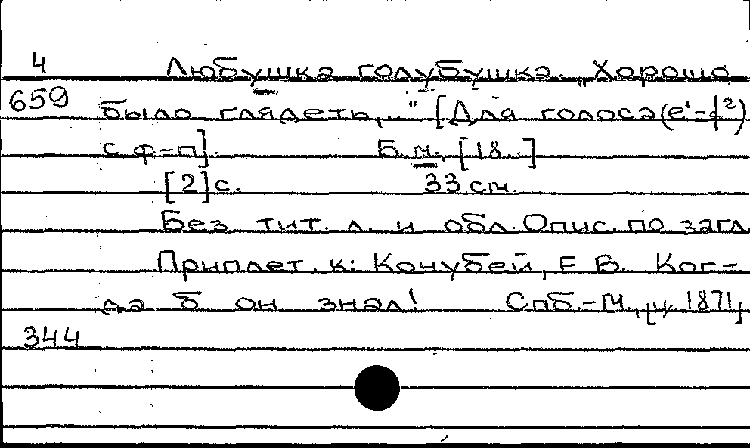 4 Любушка голубушка. „Хорошо
659 было глядеть,.." [Для голоса (e'-f²)
с ф-п]. Б.м., [18..]
[2] с. 33 см.
Без тит. л. и обл. Опис. по загл.
Приплет. к: Кочубей, Е. В. Ког-
да б он знал! Спб.-М., 1871
344